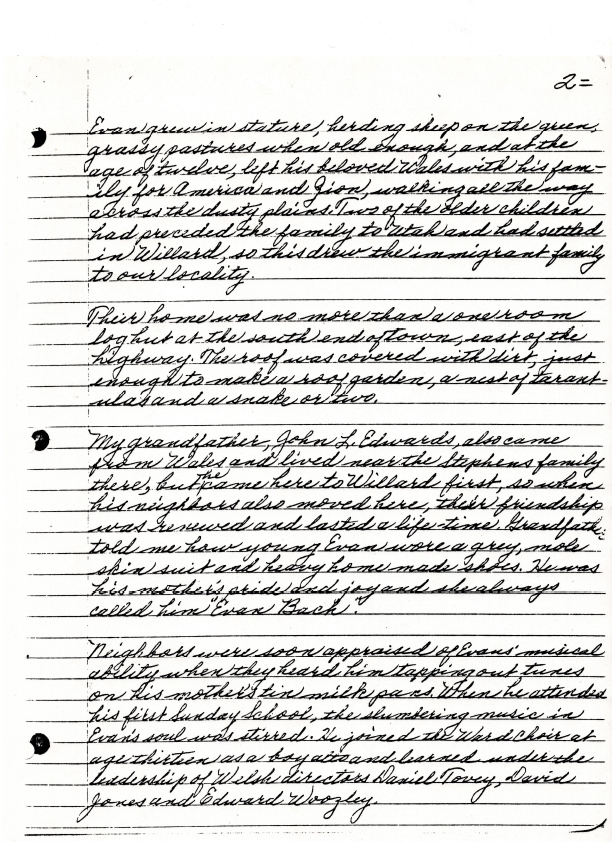 2=
Evan grew in stature, herding sheep on the green,
grassy pastures when old enough, and at the
age of twelve, left his beloved Wales with his fam-
ily for America and Zion, walking all the way
across the dusty plains. Two of the older children
had preceded the family to Utah and had settled
in Willard, so this drew the immigrant family
to our locality.
Their home was no more than a one room
log hut at the south end of town, east of the
highway. The roof was covered with dirt, just
enough to make a roof garden, a nest of tarant-
ulas and a snake or two.
My grandfather, John L. Edwards, also came
from Wales and lived near the Stephens family
there, but he came here to Willard first, so when
his neighbors also moved here, their friendship
was renewed and lasted a life-time. Grandfather
told me how young Evan wore a grey, mole
skin suit and heavy home made shoes. He was
his mother's pride and joy and she always
called him "Evan Bach".
Neighbors were soon appraised of Evans' musical
ability when they heard him tapping out tunes
on his mother's tin milk pans. When he attended
his first Sunday School, the slumbering music in
Evan's soul was stirred. He joined the Ward choir at
age thirteen as a boy alto and learned under the
leadership of Welsh directors Daniel Tovey, David
Jones and Edward Woozley.